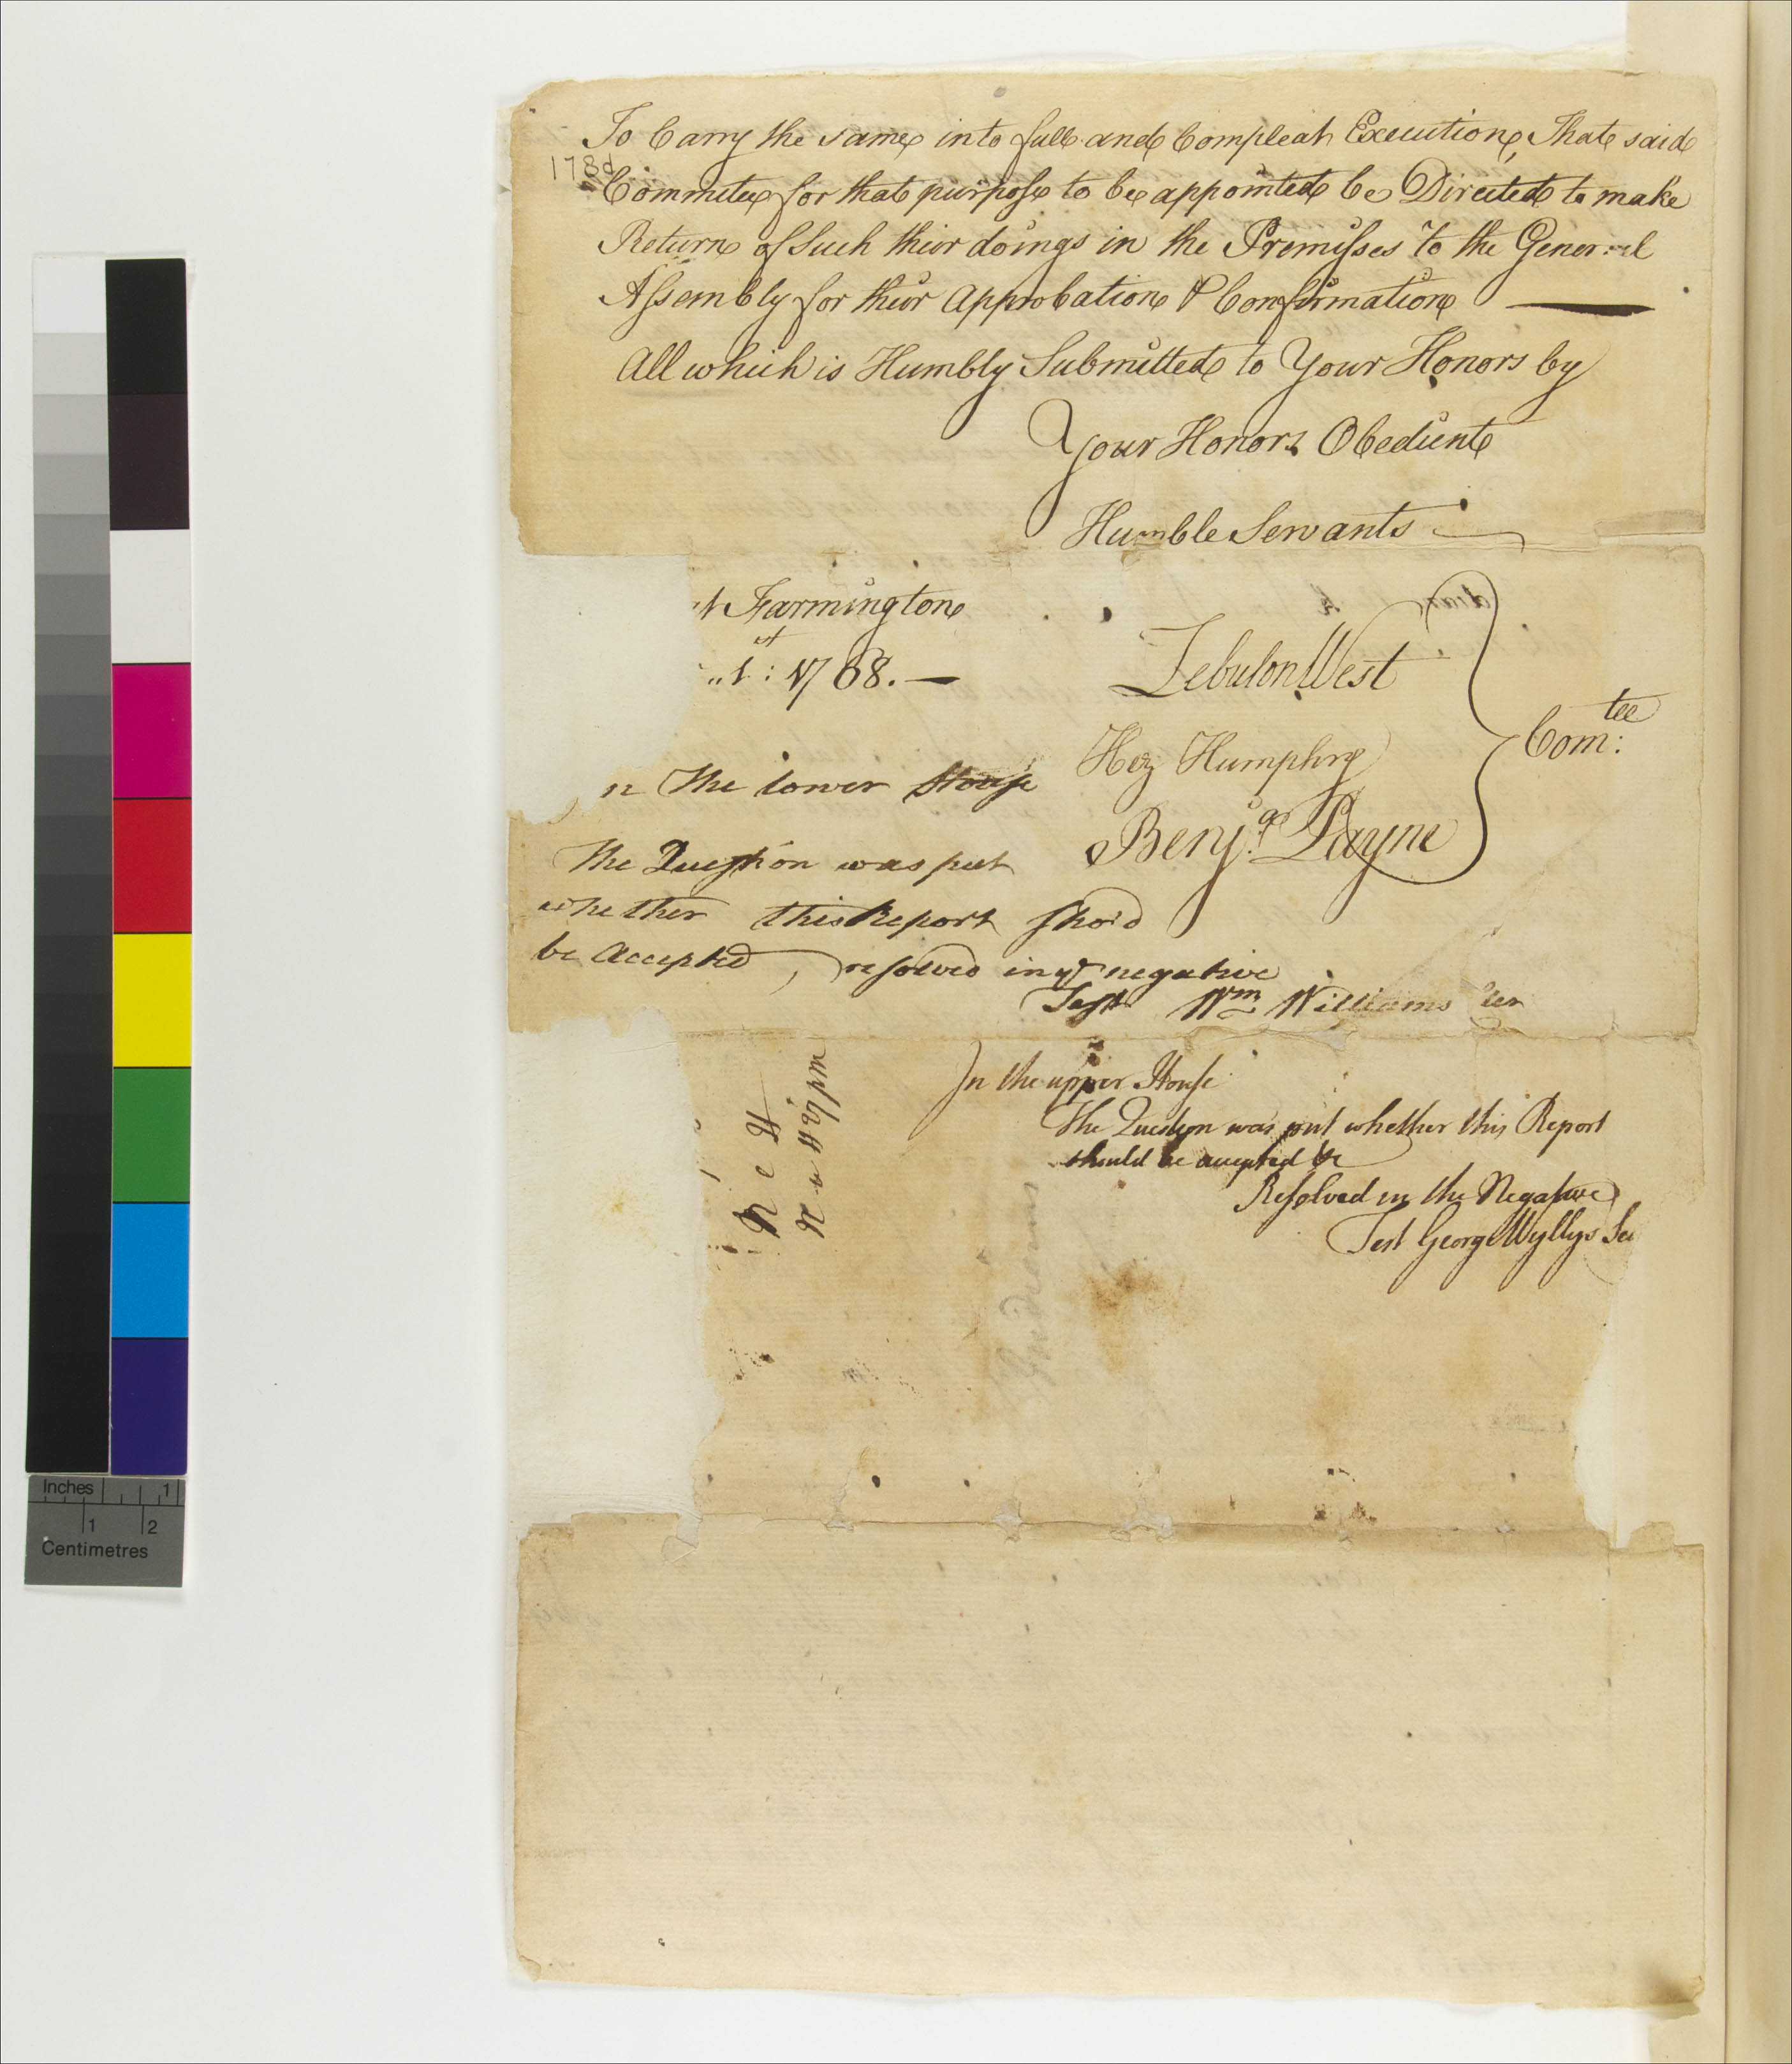 To Carry the same into full and Compleat Execution, That said
178d
Commitee for that purpose to be appointed be Directed to make
Return of Such their doings in the Premisses to the General
Assembly for their Approbation & Confirmation
All which is Humbly Submitted to Your Honors by
Your Honors Obedient
Humble Servants
t Farmington
1st: 1768.
Zebulon West
Hez Humphry
Benja Payne
Comtee:
n The lower House
The Question was put
whether this Report sho'd
be Accepted, resolved in ye negative
Test Wm Williams Cler
In the upper House
The Question was put whether this Report
should be accepted &c
Resolved in the Negative
Test George Wyllys Sec
Indians
Inches 1
1 2
Centimetres